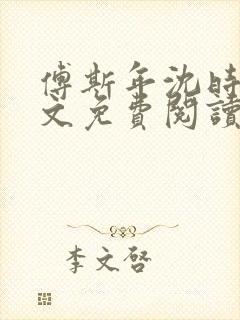 傅斯年沈時
文免費閱讀
李文啓